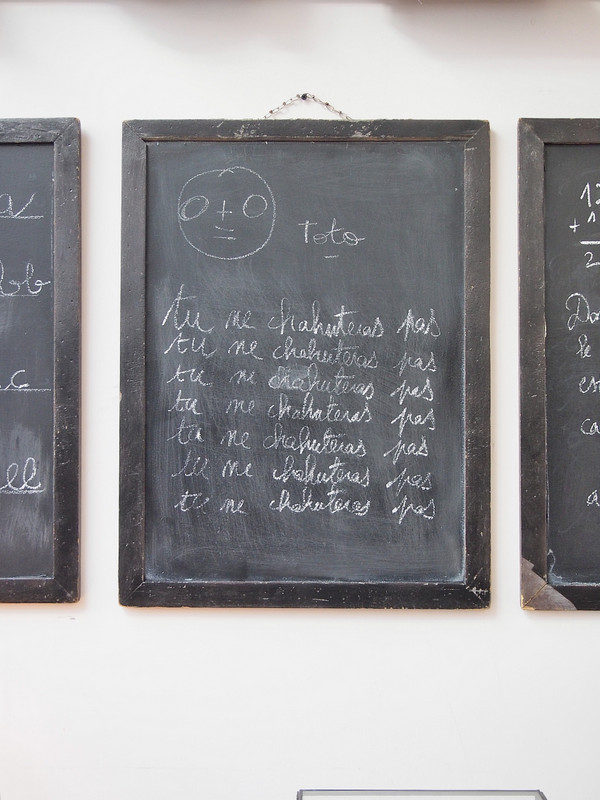 0 + 0
=
Toto
tu ne chahuteras pas
tu ne chahuteras pas
tu ne chahuteras pas
tu ne chahuteras pas
tu ne chahuteras pas
tu ne chahuteras pas
tu ne chahuteras pas
12
+ 1
2